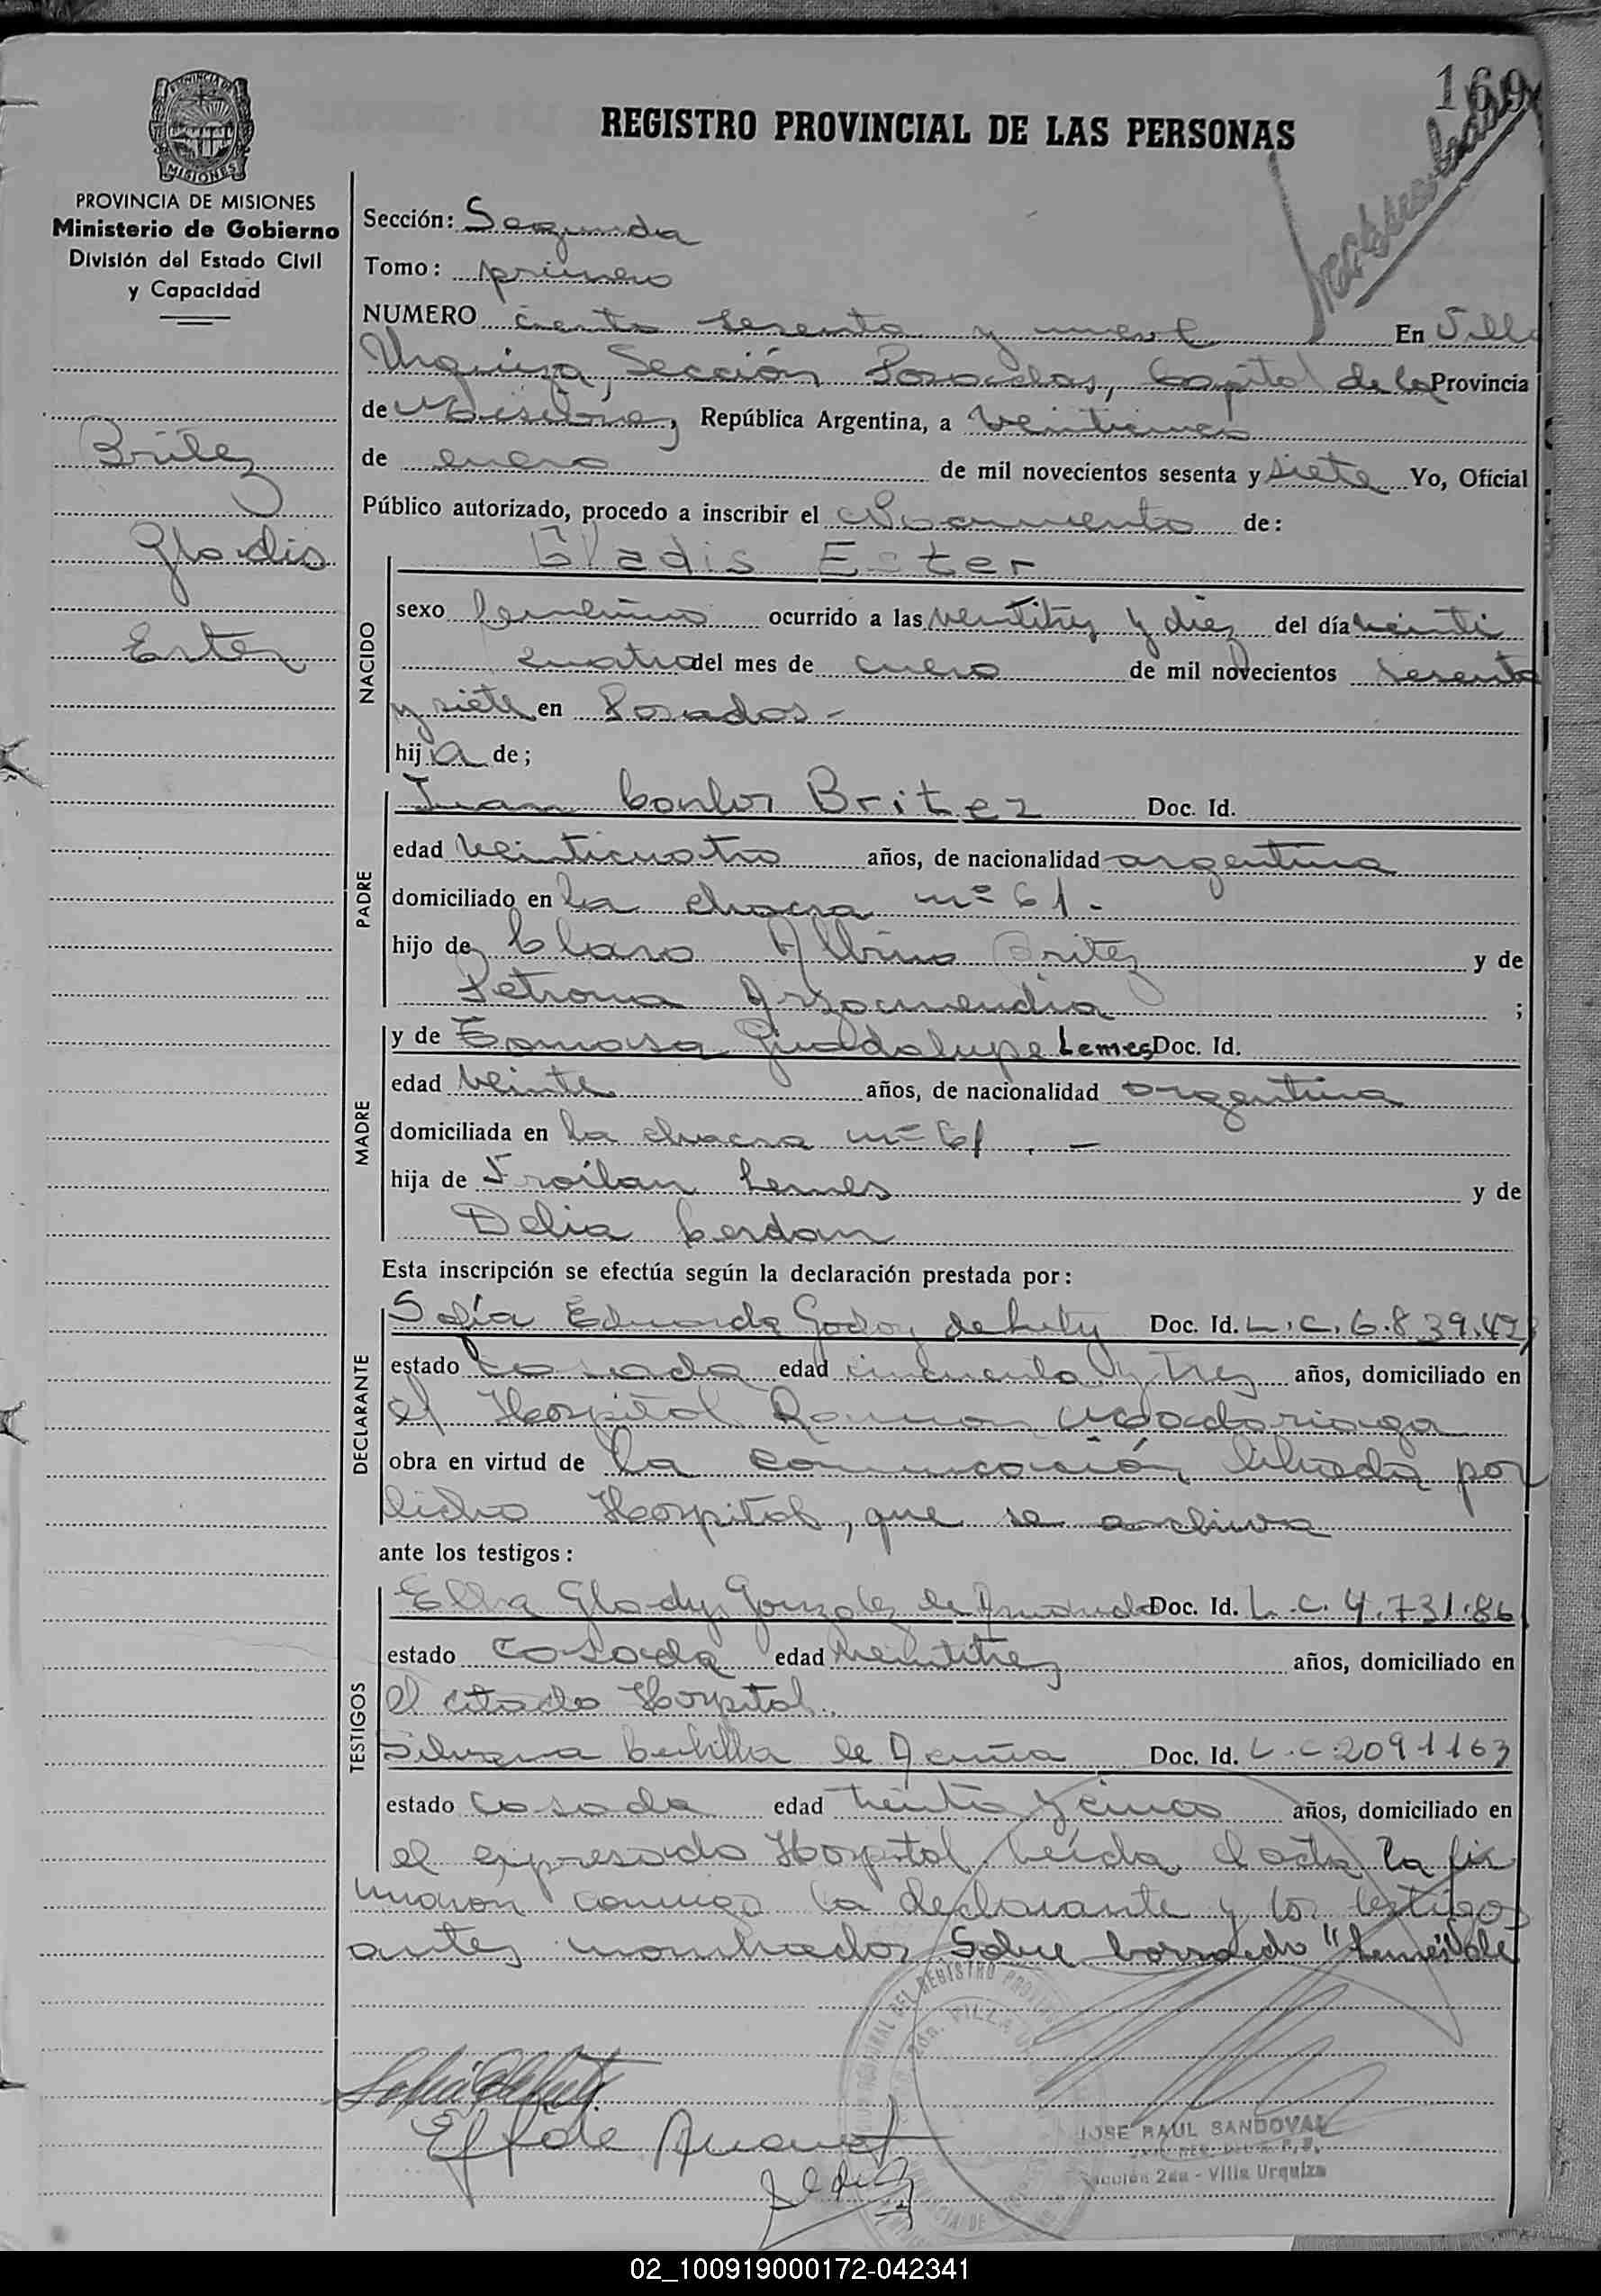 169
REGISTRO PROVINCIAL DE LAS PERSONAS
PROVINCIA DE MISIONES
Ministerio de Gobierno
División del Estado Civil
y Capacidad
Britez
Gladis
Ester
Sección: Segunda
Tomo: primero
NUMERO ciento sesenta y nueve En Villa
Urquiza, Sección Posadas, Capital de la Provincia
de Misiones, República Argentina, a veinticinco
de enero de mil novecientos sesenta y siete Yo, Oficial
Público autorizado, procedo a inscribir el Nacimiento de:
Gladis Ester
NACIDO
sexo femenino ocurrido a las veintitres y diez del día veinti
cuatro del mes de enero de mil novecientos sesenta
y siete en Posadas-
hija de;
PADRE
Juan Carlos Britez Doc. Id.
edad veinticuatro años, de nacionalidad argentina
domiciliado en la chacra nº 61-
hijo de Claro Albino Britez y de
Petrona Arzamendia ;
MADRE
y de Tomasa Guadalupe Lemes Doc. Id.
edad veinte años, de nacionalidad argentina
domiciliada en la chacra nº 61. -
hija de Froilan Lemes y de
Delia Cerdan
Esta inscripción se efectúa según la declaración prestada por:
DECLARANTE
Sofía Eduarda Godoy de Doc. Id. L.C. 6.839.42
estado casada edad cincuenta y tres años, domiciliado en
el Hospital Ramon Madariaga
obra en virtud de la comunicación librada por
dicho Hospital, que se archiva
ante los testigos:
TESTIGOS
Elba Gladys Gonzalez de Doc. Id. L.C. 4.731.86
estado casada edad veintitres años, domiciliado en
el citado Hospital.
de Acuña Doc. Id. L.C. 2091163
estado casada edad treinta y cinco años, domiciliado en
el expresado Hospital leída el acta la fir
maron conmigo la declarante y los testigos
antes nombrados Sobre borrado "Lemes" Vale
JOSE RAUL SANDOVAL
Sección 2da - Villa Urquiza
02_100919000172-042341